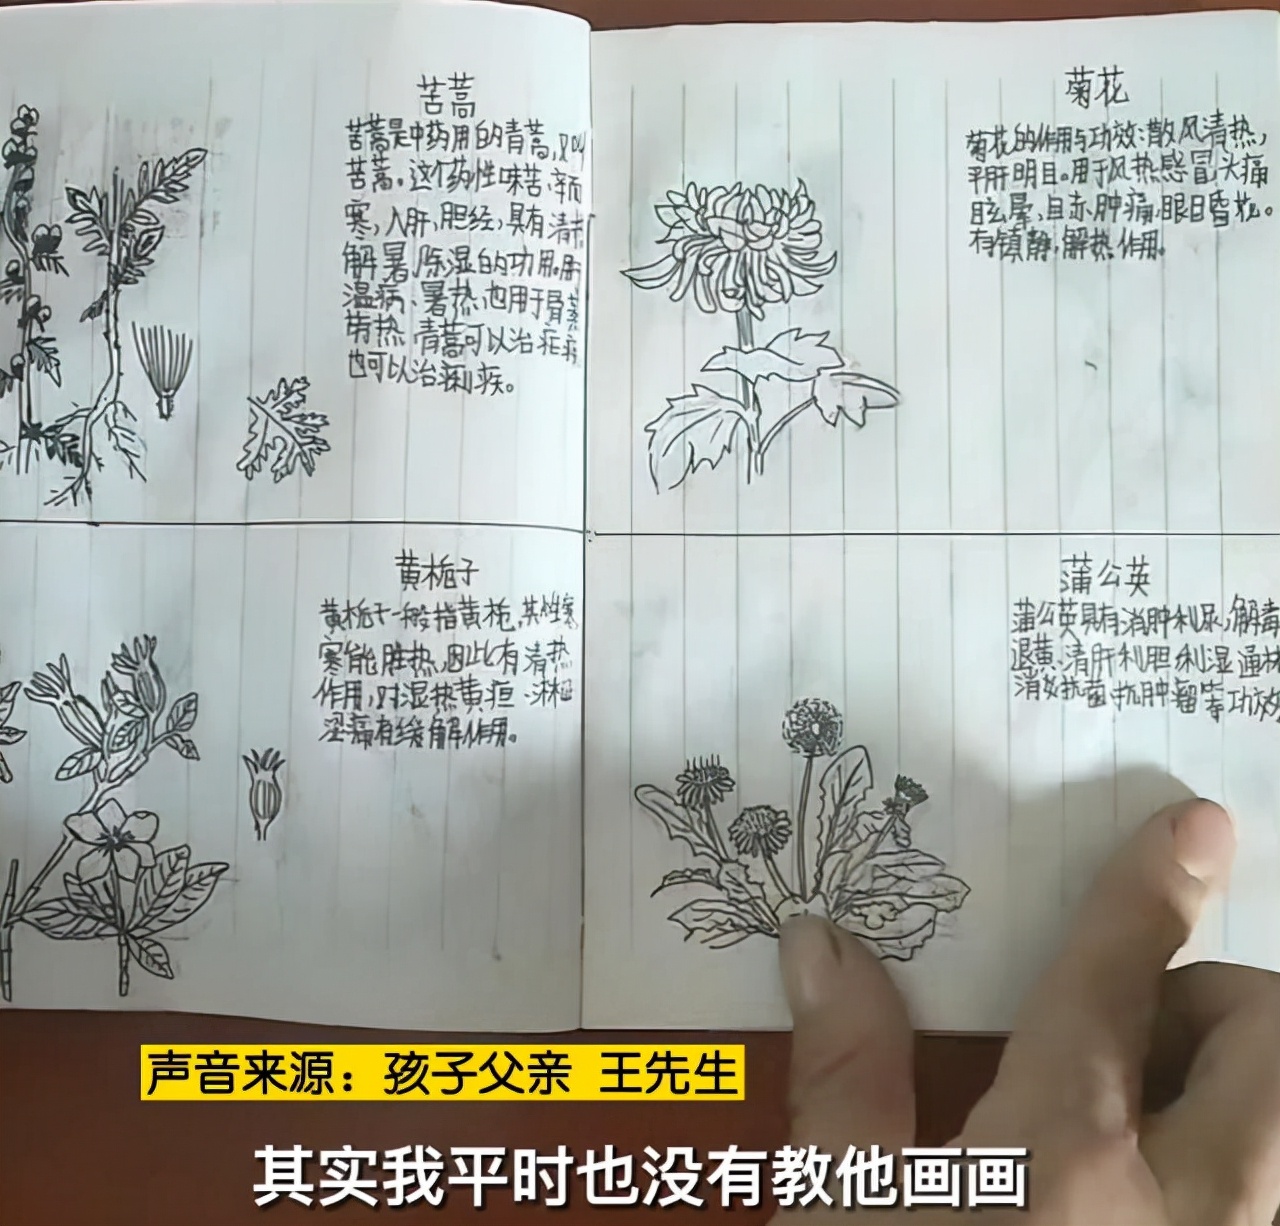 苦蒿
苦蒿是中药用的青蒿,又叫
苦蒿。这个药性味苦、辛而
寒,入肝,胆经,具有清热
解暑,除湿的功用。用
温病、暑热,也用于骨蒸
劳热,青蒿可以治疟疾
也可以治痢疾。
菊花
菊花的作用与功效:散风清热,
平肝明目。用于风热感冒,头痛
眩晕,目赤肿痛,眼目昏花。
有镇静,解热作用。
黄栀子
黄栀子一般指黄栀,其性寒
寒能胜热,因此有清热
作用,对湿热黄疸 淋证
涩痛有缓解作用。
蒲公英
蒲公英具有消肿利尿,解毒
退黄、清肝利胆,利湿通淋
消炎抗菌,抗肿瘤等功效
声音来源:孩子父亲 王先生
其实我平时也没有教他画画